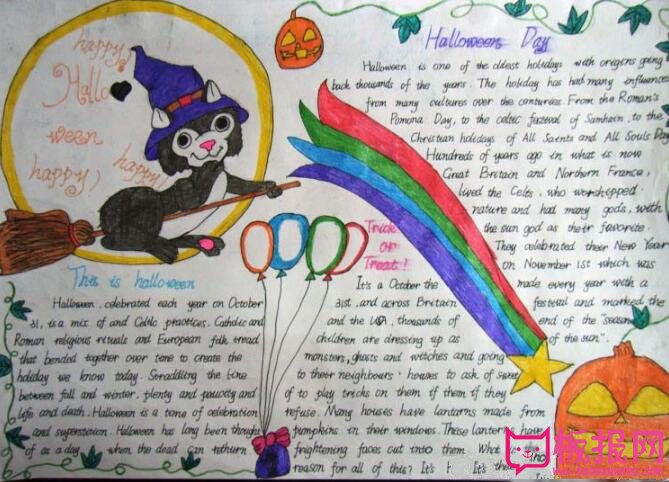 happy!
Hallo
ween
happy!
happy!
Halloween Day
Halloween is one of the oldest holidays with origins going
back thousands of the years. The holiday has had many influences
from many cultures over the centuries. From the Roman's
Pomona Day, to the celtic festival of Samhain, to the
Christian holidays of All Saints and All Souls Day
Hundreds of years ago in what is now
Great Britain and Northern France,
lived the Celts, who worshipped
nature and had many gods, with
the sun god as their favorite.
They celebrated their New Year
on November 1st which was
made every year with a
festival and marked the
end of the "season
of the sun".
This is halloween
Halloween, celebrated each year on October
31, is a mix of and Celtic practices, Catholic and
Roman religious rituals and European folk tread
that bended together over time to create the
holiday we know today. Straddling the line
between fall and winter, plenty and paucity and
life and death, Halloween is a time of celebration
and superstition. Halloween has long been thought
of as a day when the dead can return.
Trick
or
Treat!
It's a October the
31st, and across Britain
and the USA, thousands of
children are dressing up as
monsters, ghosts and witches and going
to their neighbours' houses to ask of sweet
of to play tricks on them if them if they
refuse. Many houses have lantarns made from
pumpkins in their windows. These lanterns have
frightening faces cut into them. What is
reason for all of this? It's It's the
板报网